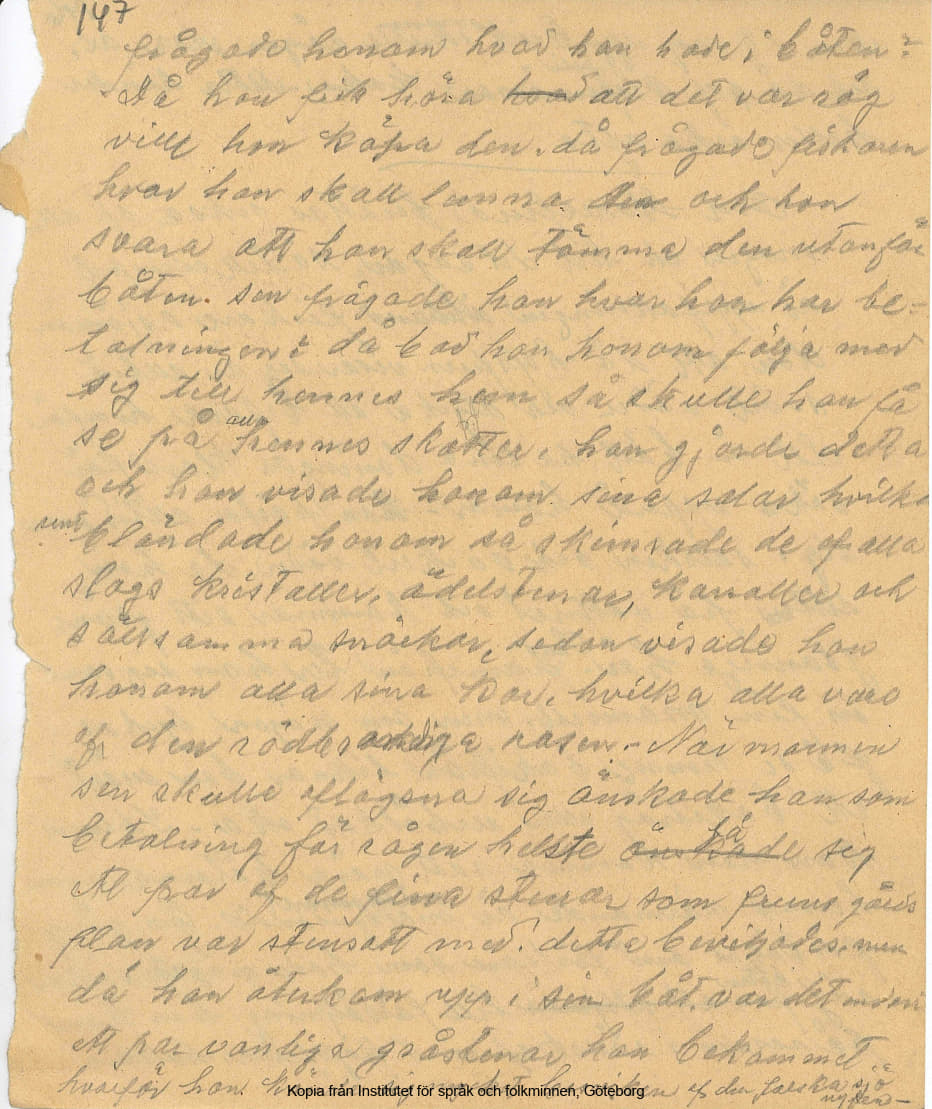 147
frågade honom hvad han hade i båten?
Då hon fick höra hvad att det var råg
ville hon köpa den. då frågade fiskaren
hvar han skall lemna den och hon
svara att han skall tömma den utanför
båten. sen frågade han hvar hon har be-
talningen? då bad hon honom följa med
sig till hennes hem så skulle han få
se på alla hennes skatter. han gjorde detta
och hon visade honom sina salar hvilka
bländade honom så skimrade de af alla
slags kristaller, ädelstenar, koraller och
sällsamma snäckor, sedan visade hon
honom alla sina kor, hvilka alla voro
af den rödbrokiga rasen. - När mannen
sen skulle aflägsna sig önskade han som
betalning för rågen helste önskade få sig
ett par af de fina stenar som fruns gårds
plan var stensatt med. detta beviljades. men
då han återkom upp i sin båt var det
ett par vanliga gråstenar han bekommet
hvarför han af den falska sjö
Kopia från Institutet för språk och folkminnen, Göteborg